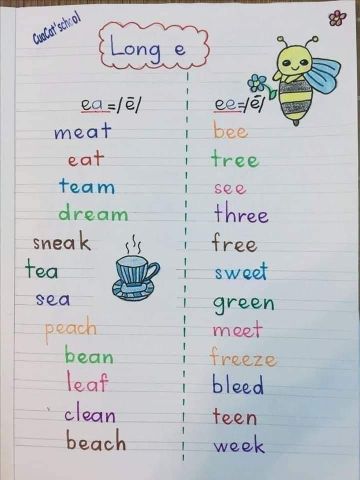 CuaCat'school
Long e
ea=/ē/
meat
eat
team
dream
sneak
tea
sea
peach
bean
leaf
clean
beach
ee=/ē/
bee
tree
see
three
free
sweet
green
meet
freeze
bleed
teen
week